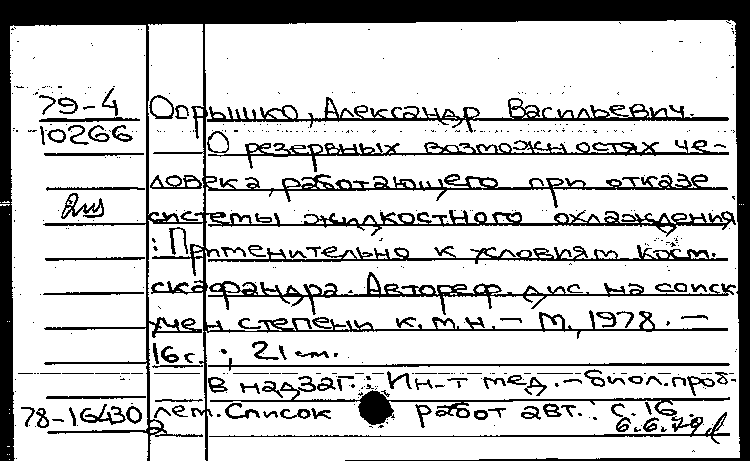 79-4 Опрышко, Александр Васильевич.
10266 О резервных возможностях че-
ловека, работающего при отказе
системы жидкостного охлаждения
: Применительно к условиям косм.
скафандра. Автореф. дис. на соиск.
учен степени к.м.н. - М., 1978. -
16 с. ; 21 см.
В надзаг.: Ин-т мед.-биол.проб-
78-16430 лем. Список работ авт.: с.16.
2 6.6.79